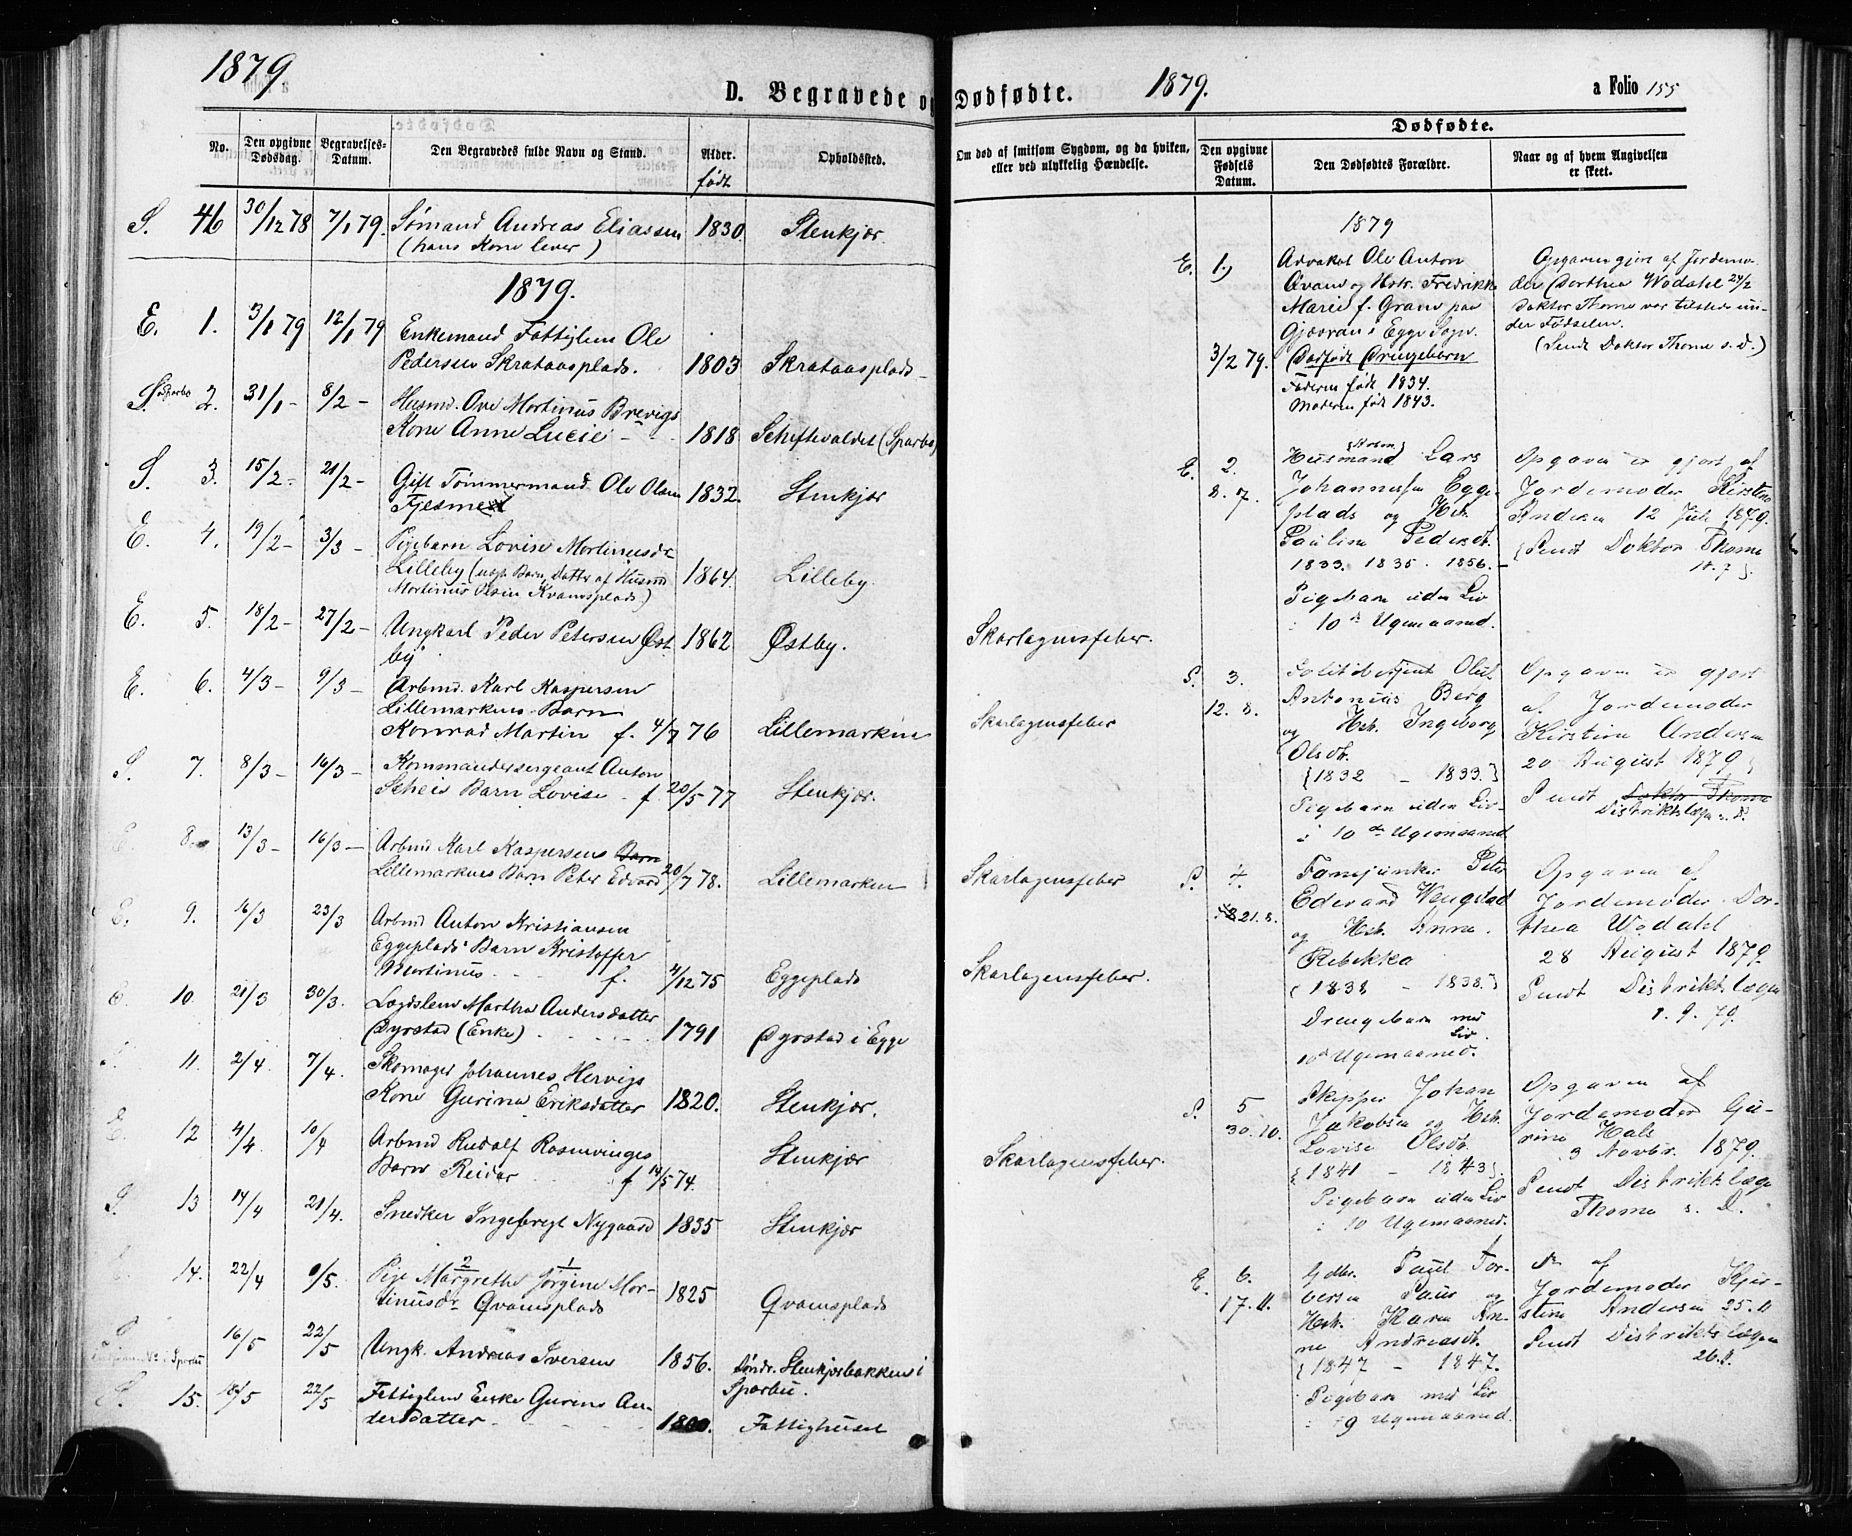 1879
D. Begravede og
No.
Den opgivne Dødsdag.
Begravelses-Datum.
Den Begravedes fulde Navn og Stand.
Alder.
født
Opholdssted.
S. 46 30/12 78 7/1 79. Sømand Andreas Eliassen 1830. Stenkjær.
(hans Kone lever)
1879.
E. 1. 3/1 79 12/1 79 Enkemand Fattiglem Ole
Pedersen Skrataasplads. 1803 Skrataasplads
S. Sparbo 2. 31/1 - 8/2 - Husmd. Ove Mortinus Brevigs
Kone Anne Lucie - 1818 (Sparbo)
S. 3. 15/2 - 21/2 - Gift Tømmermand Ole Olsen 1832. Stenkjær
E. 4. 19/2 - 3/3 - Pigebarn Lovise Mortinusdr
Lilleby (uægte Barn, Datter af Husmd 1864. Lilleby.
Mortinus Olsen Kvamsplads.)
E. 5. 18/2 - 27/2 - Ungkarl Peder Petersen Øst 1862 Østby.
by.
E. 6. 4/3 - 9/3 - Arbmd. Karl Kaspersen
Lillemarkens Barn
Konrad Martin f. 4/7 76 Lillemarken
S. 7. 8/3 - 16/3 - Kommandersergeant Anton
Scheis Barn Lovise - f. 20/5 77 Stenkjær.
E. 8. 13/3 - 16/3 - Arbmd Karl Kaspersens Barn
Lillemarkens Barn Peter Edvard 20/7 78. Lillemarken
E. 9. 16/3 23/3 Arbmd Anton Kristiansen
Eggeplads' Barn Kristoffer
Mortinus f. 4/12 75 Eggeplads
E. 10. 21/3 30/3. Lægdslem Martha Andersdatter
Dyrstad (Enke) 1791 Dyrstad i Egge
S. 11. 2/4 7/4. Skomager Johannes Hervigs
Kone Gurine Eriksdatter 1820. Stenkjær.
E. 12 4/4. 10/4 Arbmd Rudolf Rosenvinges
Barn Reidar f 14/5 74. Stenkjær
S. 13 14/4 21/4. Snedker Ingebrigt Nygaard 1835 Stenkjær
E. 14. 22/4 9/5. Pige Margrethe Jørgine Mor-
2 1
tinusdr Qvamsplads 1825 Qvamsplads
S. 16/5 22/5 Ungk. Andreas Iversen 1856. Søndr. Stenkjærbakken i
Sparbu.
S. 15. 18/5 22/5 Fattiglem Enke Gurine An-
dersdatter 1800. Fattighuset
Dødfødte. 1879. a Folio 155
Om død af smitsom Sygdom, og da hviken,
eller ved ulykkelig Hændelse.
Dødfødte.
Den opgivne Fødsels Datum.
Den Dødfødtes Forældre.
Naar og af hvem Angivelsen er skeet.
Skarlagensfeber.
Skarlagensfeber
Skarlagensfeber
Skarlagensfeber.
Skarlagensfeber.
1879
E. 1.) 3/2 79.
Advokat Ole Anton
Qvam og Hstr. Fredrikke
Marie f. Gram paa
Gjævran i Egge Sogn.
Dødfødt Drengebarn
Faderen født 1834.
Moderen født 1843.
Opgaven gjort af Jordemo-
der Dorthea Wodahl 24/2
Doktor Thome var tilstede un-
der Fødselen.
(Sendt Doktor Thome s. d.)
E. 2. 8. 7.
Husmand Lars
Johannesen Egge-
plads og Hst.
Pauline Pedersdt.
1833. 1835. 1856.
Pigebarn uden Liv
i 10de Ugemaaned.
Opgaven er gjort af
Jordemoder Kirstine
Andersen 12 Juli 1879.
{Sendt Doktor Thome
14. 7}.
S. 3. 12. 8.
Agent Oluf
Antonius Berg
og Hst. Ingeborg
Olsdt.
{1832 - 1833.}
Pigebarn uden Liv
i 10de Ugemaaned
Opgaven er gjort
af Jordemoder
Kirstine Andersen
20 August 1879
Sendt Doktor Thome
Distriktslægen s. D.
S. 4. 21. 8.
Fanejunker Peter
Edevard Wengstad
og Hst. Anne
Rebekka
{1838 - 1838.}
Drengebarn med
Liv
10de Ugemaaned.
Opgaven af
Jordemoder Dor-
thea Wodahl
28 August 1879
Sendt Distriktslægen
1. 9. 79.
S. 5 30. 10.
Skipper Johan
Jakobsen og Hst.
Lovise Olsdt.
{1841 - 1843}.
Pigebarn uden Liv
i 10 Ugemaaned.
Opgaven af
Jordemoder Gu-
rine Hals
3 Novbr. 1879.
Sendt Distriktslæge
Thome s. D.
E. 6. 17. 11.
Gdbr. Paul Tor-
bersen Paur og
Hst. Karen An-
ne Andreasdt.
{1847 - 1847.
Pigebarn med Liv
i 9 Ugemaaned.
Do af
Jordemoder Kjer-
stine Andersen 25. 11
Sendt Distriktslægen
26. 11.